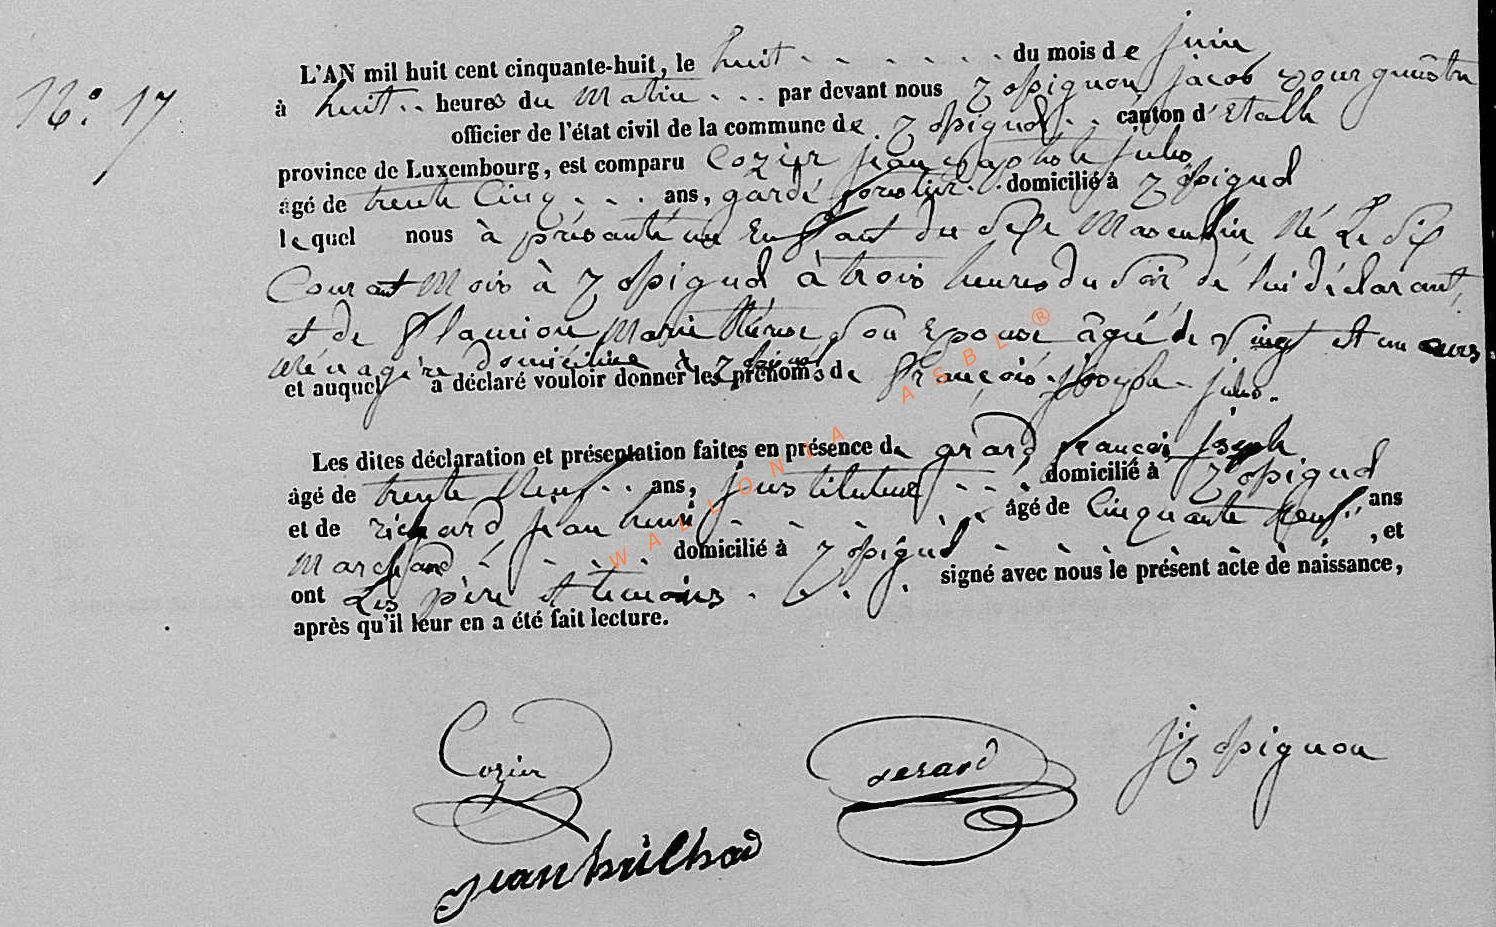 N.° 17
L'AN mil huit cent cinquante-huit, le huit du mois de juin
à huit heures du matin par devant nous jacob bourgmestre
officier de l'état civil de la commune de canton d'Etalle
province de Luxembourg, est comparu Cozier jean baptiste jules
agé de trente Cinq ans, garde forestier domicilié à
lequel nous à présanté un Enffant du sexe Masculin Né Le six
Courant Mois à à trois heures du soir de lui déclarant,
et de flamion Marie thérèse son Epouse âgée de vingt et un ans
Ménagère domiciliée à
et auquel a déclaré vouloir donner les prénoms de françois joseph jules.
Les dites déclaration et présentation faites en présence de gérard françois joseph
âgé de trente neuf ans, justituteur domicilié à
et de richard jean henri âgé de Cinquante neuf ans
Marchand domicilié à , et
ont Les père et temoins signé avec nous le présent acte de naissance,
après qu'il leur en a été fait lecture.
Cozier
gerard
WALLONIA ASBL ®